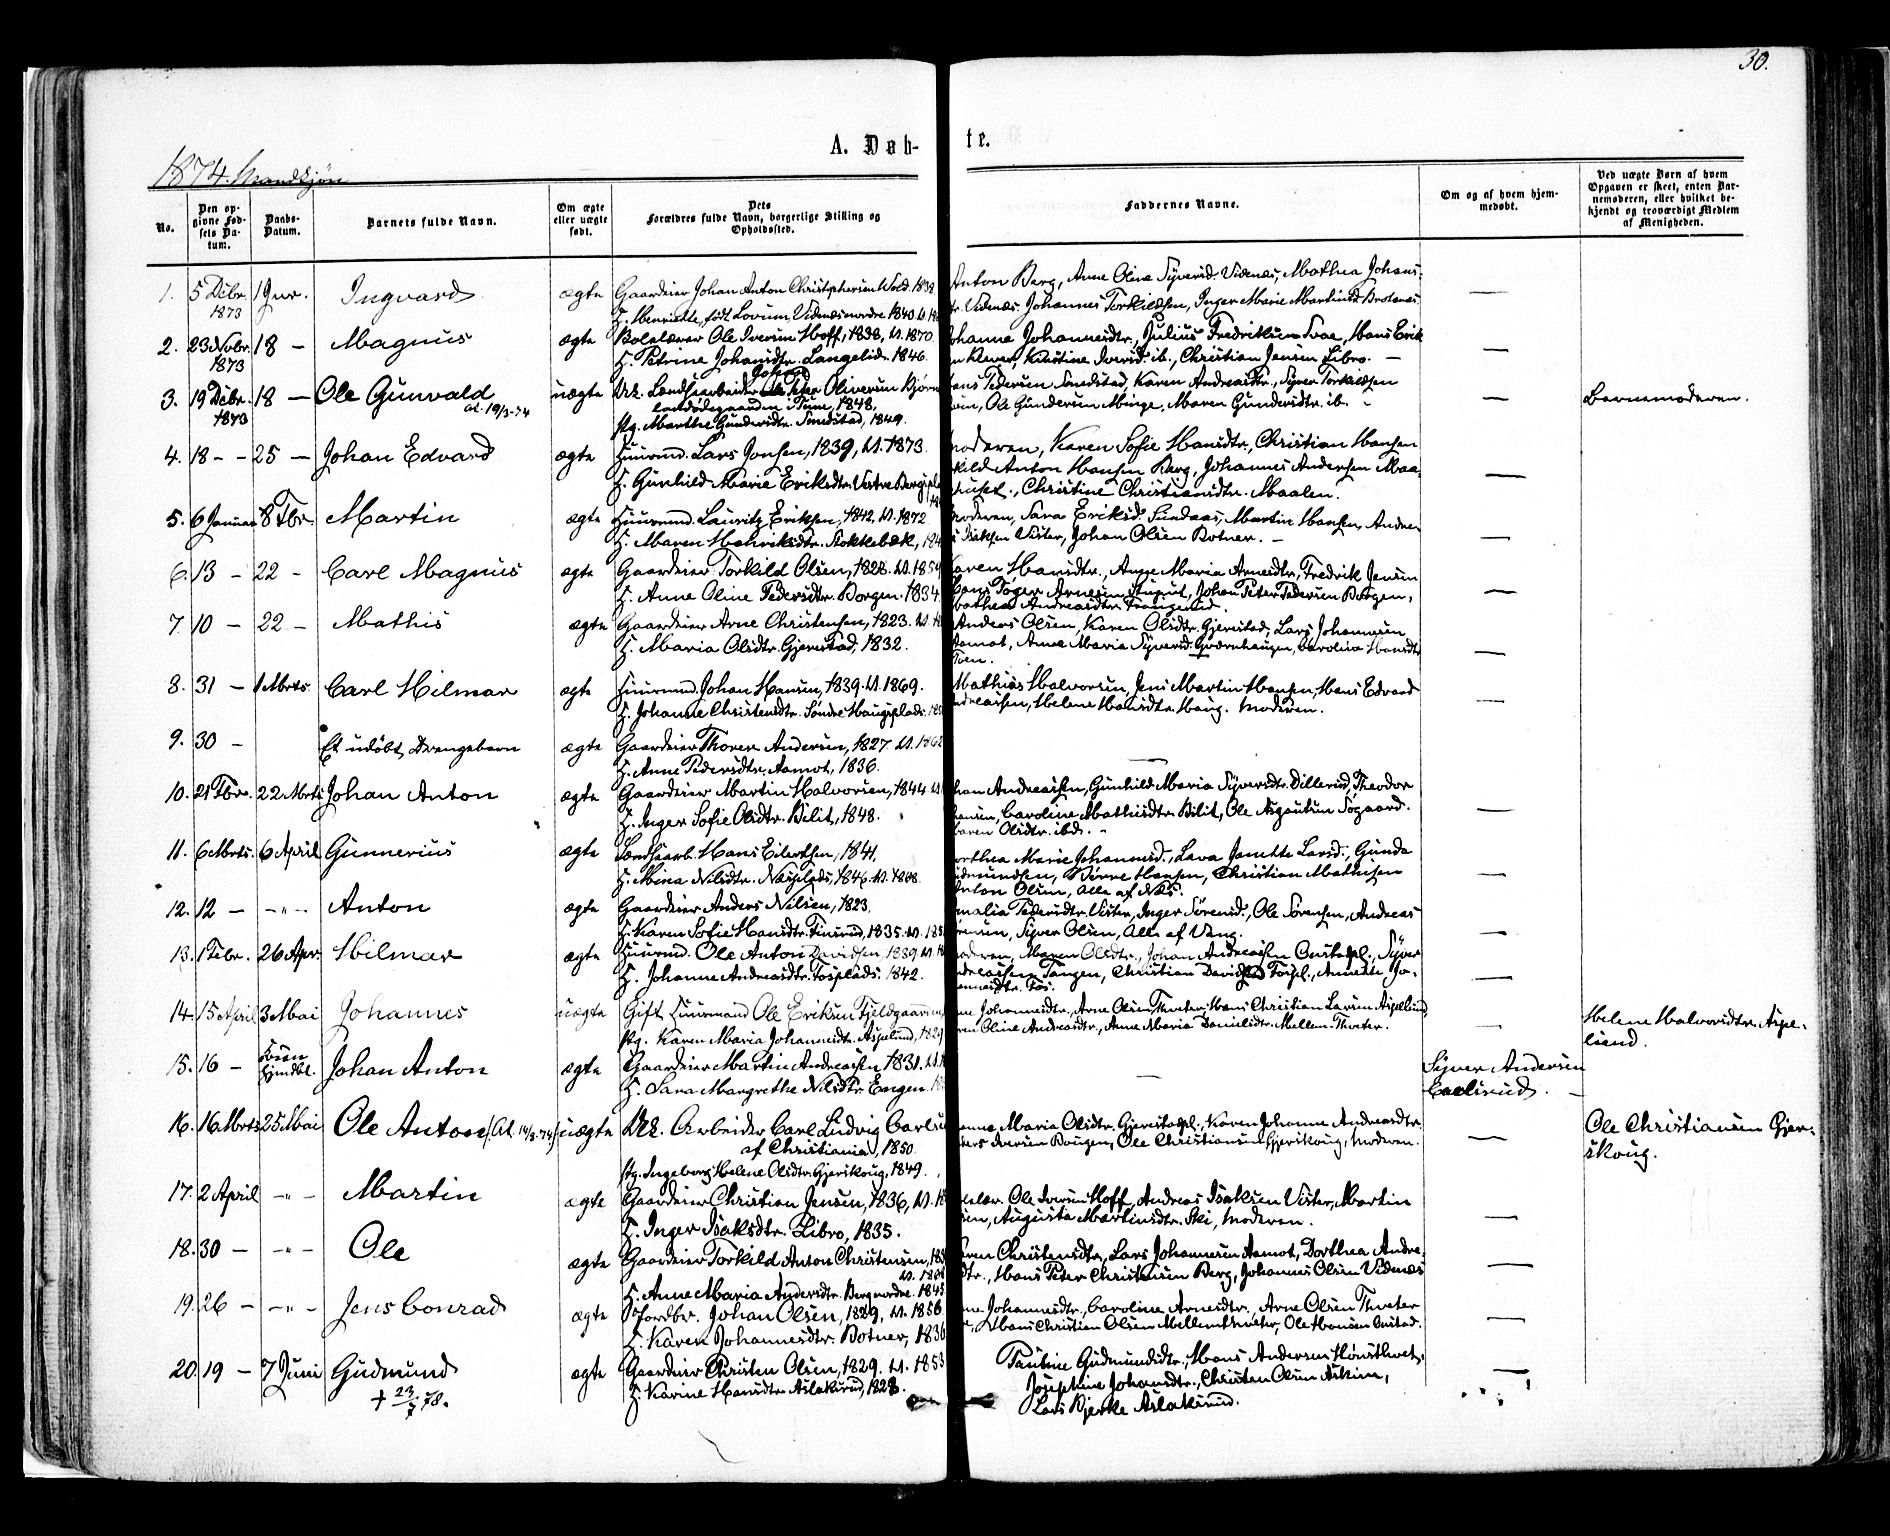 30.
A. Døbte.
1874. Mandkjøn
No.
Den opgivne Fødsels Datum.
Daabs-Datum.
Barnets fulde Navn.
Om ægte eller uægte født.
Dets Forældres fulde Navn, borgerlige Stilling og Opholdssted.
Faddernes Navne.
Om og af hvem hjemmedøbt.
Ved uægte Børn af hvem Opgaven er skeet, enten Barnemoderen, eller hvilket bekjendt og troværdigt Medlem af Menigheden.
1. 5 Debr. 1873 1 Jnr. Ingvard ægte Gaardeier Johan Anton Christophersen Wold 1838
H. Henriette, født Lovum, Videnæs nordre 1840
Anton Berg, Anne Oline Syversd. Videnæs, Mathea Johans-
Videnæs, Johannes Torkildsen, Inger Marie Martinsd. Brotenæs
2. 23 Novbr. 1873 18 – Magnus ægte Skolelærer Ole Iversen Hoff, 1838, W. 1870
H. Petrine Johansdtr. Langelid. 1846.
Johanne Johannesdtr., Julius Fredriksen Svae, Hans Erik
Klever, Kristine Iversd. ib., Christian Jensen Libro. –
3. 19 Debr. 1873 18 – Ole Gunvald at. 19/3-74 uægte Ark. Landsarbeider Johan Peter Oliversen Bjørn
landsødegaarden i Tune, 1848.
Pg. Marthe Gundersdtr. Smedstad, 1849.
Hans Pedersen Smedstad, Karen Andreasdtr., Syver Torkildsen
Ole Gundersen Minge, Maren Gundersdtr. ib.
Barnemoderen.
4. 18 – – 25 – Johan Edvard ægte Huusmd. Lars Jonsen, 1839, W. 1873.
H. Gunhild Marie Eriksdtr. Vestre Bergspl
Moderen, Karen Sofie Hansdtr., Christian Hansen
Anton Hansen Berg, Johannes Andersen Maa-
Christine Christiansdtr. Maalen.
5. 6 Januar 8 Fbr. Martin ægte Huusmd. Lauritz Eriksen, 1842, W. 1872
H. Maren Henriksdtr. Stokkebæk, 184
Moderen, Sara Eriksd. Sundaas, Martin Hansen, Andre-
Isaksen Vister, Johan Olsen Botner. –
6. 13 – 22 – Carl Magnus ægte Gaardeier Torkild Olsen, 1828. W. 1854
H. Anne Oline Pedersdtr. Borgen. 1834
Karen Hansdtr., Anne Maria Arnesdtr., Fredrik Jensen
Hans Arnesen Stuput, Johan Peter Pedersen Borgen,
Mathea Andreasdtr. Frangerud.
7. 10 – 22 – Mathis ægte Gaardeier Arne Christensen, 1823. W.
H. Maria Olsdtr. Gjerestad, 1832.
Anders Olsen, Karen Olsdtr. Gjerestad, Lars Johannesen
Aamot, Anne Maria Syversd. Gværnhaugen, Carolina Hansdtr.
8. 31 – 1 Mrts Carl Hilmar ægte Huusmd. Johan Hansen, 1839. W. 1869.
H. Johanne Christensdtr. Søndre Haugsplads.
Mathias Halvorsen, Jens Martin Hansen, Hans Edvard
Andreassen, Helene Hansdtr. Haug. Moderen.
9. 30 – Et udøbt Drengebarn ægte Gaardeier Thorer Andersen, 1827. W. 1862
H. Anne Pedersdtr. Aamot, 1836.
10. 21 Fbr. 22 Mrts Johan Anton ægte Gaardeier Martin Halvorsen, 1844 W.
H. Inger Sofie Olsdtr. Bilit, 1848.
Johan Andreassen, Gunhild Maria Syversdtr. Dillerud, Theodor
Caroline Mathisdtr. Bilit, Ole Asgautsen Søgaard.
Maren Olsdtr. ibd. –
11. 6 Mrts. 6 April Gunnerius ægte Landsarb. Hans Eilertsen, 1841,
H. Mina Nilsdtr. Næsplads, 1846. W. 1868.
Dorthea Marie Johannesd., Lava Janette Larsd., Gunda
Gudmundsen, Bernt Hansen, Christian Mathisen
Anton Olsen, Alle af Næs.
12. 12 – – „ – Anton ægte Gaardeier Anders Nilsen, 1823.
H. Karen Sofie Hansdtr. Finsrud, 1835. W. 185
Amalia Pedersdtr. Vister, Inger Sørensd., Ole Sørensen, Andreas
Syver Olsen, Alle af Vang.
13. 1 Febr. 26 Apr. Hilmar ægte Huusmd. Ole Anton Davidsen 1839. W.
H. Johanne Andreasdtr. Fosplads. 1842.
Moderen, Maren Olsdtr., Johan Andreassen Onstadpl., Syver
Andreassen Tangen, Christian Davidsen Fospl., Annette Jo-
hannesdtr. Fos.
14. 15 April 3 Mai Johannes uægte Gift Huusmand Ole Eriksen Fjeldgaarden
Pg. Karen Maria Johannesdtr. Aspelund, 1829
Johannesdtr., Arne Olsen Thveter, Hans Christian Larsen Aspelund,
Karen Oline Andreasdtr., Anne Maria Danielsdtr. Mellem-Thveter.
Helene Halvorsdtr. Aspe-
lund.
15. 16 – Johan Anton ægte Gaardeier Martin Andreassen 1831. W.
H. Sara Margrethe Nilsdtr. Engen.
Syver Andersen
16. 16 Mrts 25 Mai Ole Anton (At. 14/8-74) uægte Ark. Arbeider Carl Ludvig Carlsen
af Christiania, 1850.
Pg. Ingeborg Helene Olsdtr. Gjerskoug, 1849.
Anne Maria Olsdtr. Gjerestadpl., Karen Johanne Andreasdtr.
Iversen Bougen, Ole Christiansen Gjerskoug, Moderen.
Ole Christiansen Gjer-
skoug.
17. 2 April – „ – Martin ægte Gaardeier Christian Jensen, 1836, W.
H. Inger Isaksdtr. Libro, 1835.
Ole Iversen Hoff, Andreas Isaksen Vister, Martin
Augusta Martinsdtr. Ski, Moderen.
18. 30 – – „ – Ole ægte Gaardeier Torkild Anton Christensen,
H. Anne Maria Andersdtr. Berg nordre. 1845
Karen Christensdtr., Lars Johannesen Aamot, Dorthea Andre-
dtr., Hans Peter Christensen Berg, Johannes Olsen Videnæs
19. 26 – – „ – Jens Conrad ægte Johan Olsen, 1829, W. 1856
H. Karen Johannesdtr. Botner, 1836
Johannesdtr., Caroline Arnesdtr., Arne Olsen Thveter
Hans Christian Olsen Mellemthveter, Ole Hansen Onstad.
20. 19 – 7 Juni Gudmund ægte Gaardeier Christen Olsen, 1829. W. 1853
† 23/7 78. H. Karine Hansdtr. Aslaksrud, 1828.
Pauline Gudmundsdtr., Hans Andersen Hønsthvet,
Josephine Johansdtr., Christen Olsen Askim,
Lars Bjerke Aslaksrud.